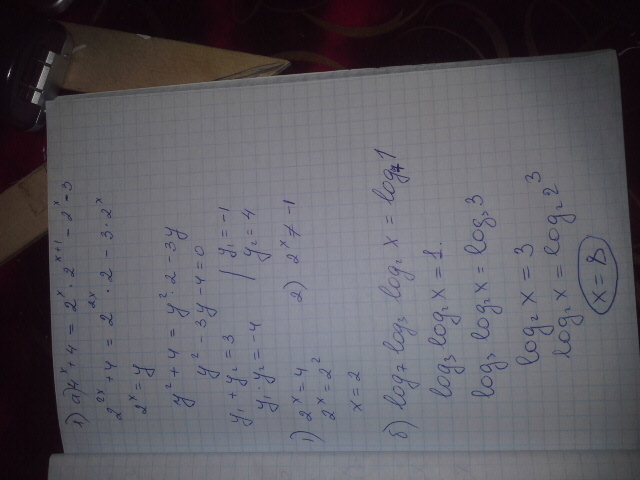 1) а) 4^x + 4 = 2^x · 2^(x+1) - 2^x · 3
2^(2x) + 4 = 2^(2x) · 2 - 3 · 2^x
2^x = y
y² + 4 = y² · 2 - 3y
y² - 3y - 4 = 0
y₁ + y₂ = 3 | y₁ = -1
y₁ · y₂ = -4 | y₂ = 4
1) 2^x = 4 2) 2^x ≠ -1
2^x = 2²
x = 2
б) log₇ log₃ log₂ x = log₇ 1
log₃ log₂ x = 1.
log₃ log₂ x = log₃ 3
log₂ x = 3
log₂ x = log₂ 2³
x = 8